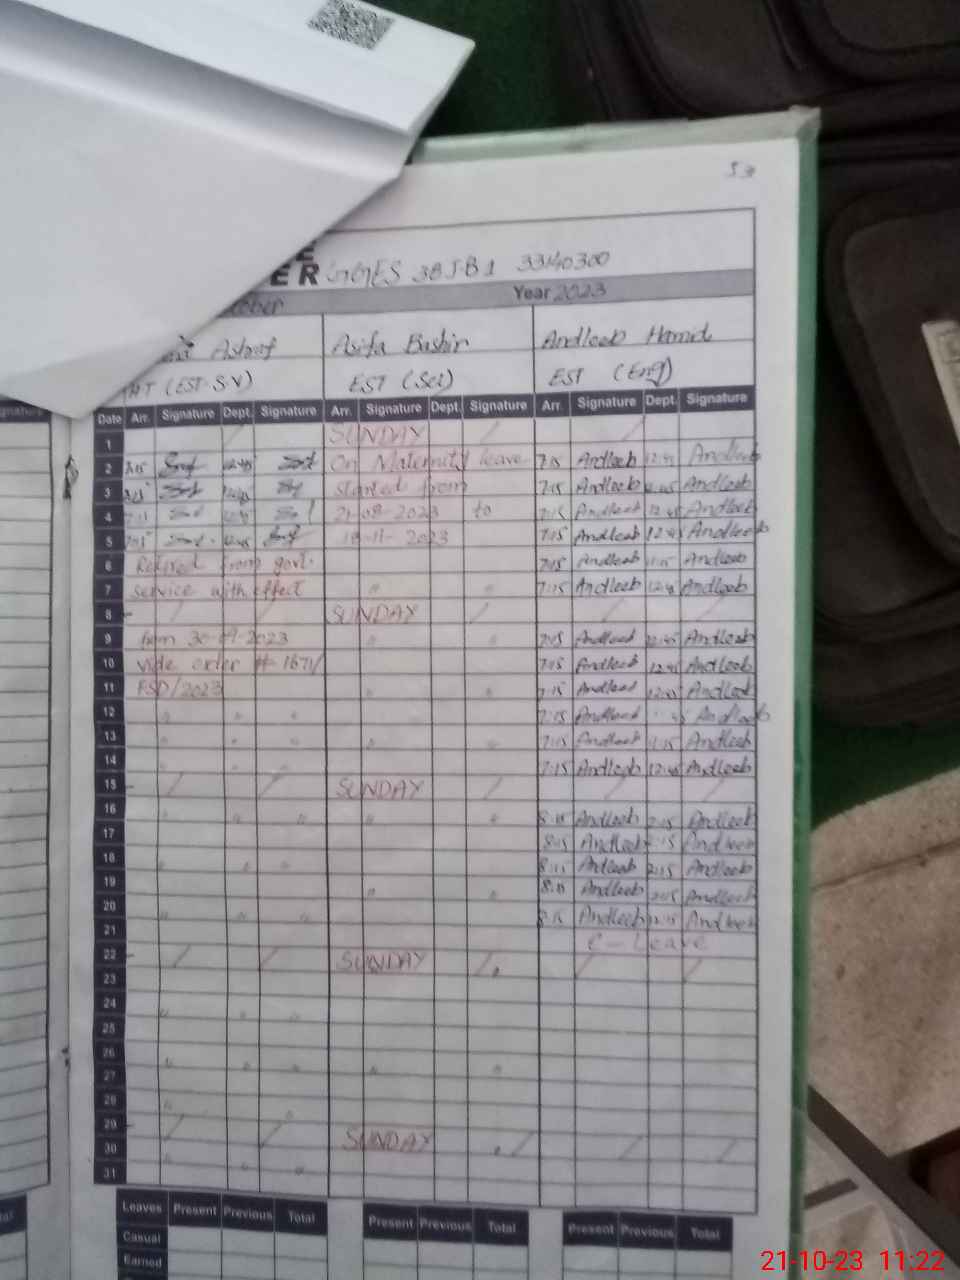 53
E
ER GGES 38 J-B 1 33140300
Year 2023
Ashraf Asifa Bashir Andleeb Hamid
(EST-S.V) EST (Sci) EST (Eng)
Date Arr. Signature Dept. Signature Arr. Signature Dept. Signature Arr. Signature Dept. Signature
1 SUNDAY
2 On Maternity leave 7:15 Andleeb 12:45 Andleeb
3 started from 7:15 Andleeb 12:45 Andleeb
4 21-08-2023 to 7:15 Andleeb 12:45 Andleeb
5 18-11-2023 7:15 Andleeb 12:45 Andleeb
6 Retired from govt. 7:15 Andleeb Andleeb
7 service with effect 7:15 Andleeb 12:45 Andleeb
8 SUNDAY
9 from 30-09-2023 7:15 Andleeb 12:45 Andleeb
10 vide order # 1671/ 7:15 Andleeb 12:45 Andleeb
11 FSD/2023 7:15 Andleeb 12:45 Andleeb
12 7:15 Andleeb Andleeb
13 7:15 Andleeb Andleeb
14 7:15 Andleeb 12:45 Andleeb
15 SUNDAY
16 8:15 Andleeb 2:15 Andleeb
17 8:15 Andleeb 2:15 Andleeb
18 8:15 Andleeb 2:15 Andleeb
19 8:15 Andleeb 2:15 Andleeb
20 8:15 Andleeb Andleeb
21 C-Leave
22 SUNDAY
23
24
25
26
27
28
29
30 SUNDAY
31
Leaves Present Previous Total Present Previous Total Present Previous Total
Casual
Earned
21-10-23 11:22